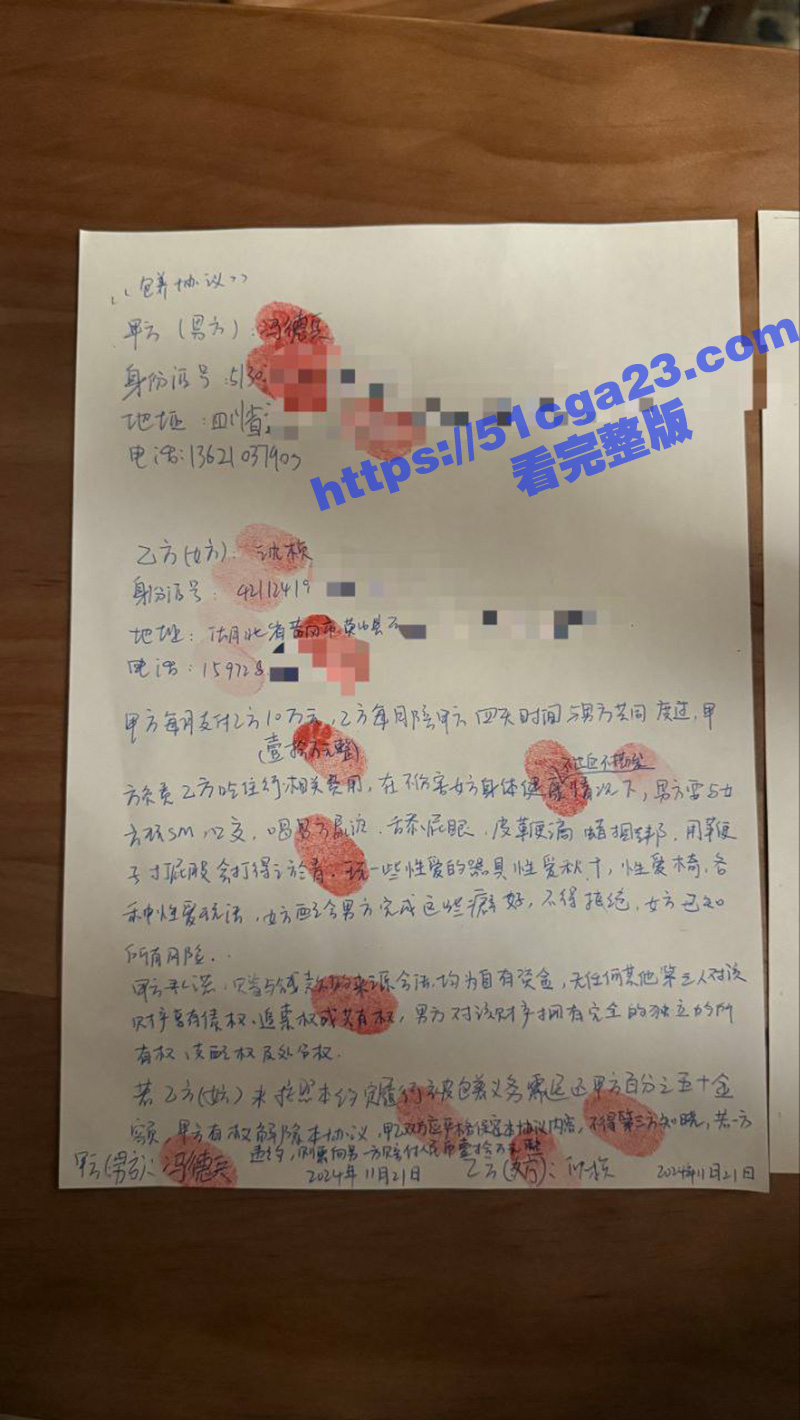 “包养协议”
甲方（男方）：
身份证号：
地址：
电话：
https://51cga23.com
看完整版
乙方（女方）：
身份证号：
地址：
电话：
甲方每月支付乙方10万元，乙方每月陪甲方四天时间与男方共同度过，甲
（壹拾万元整）
方负责乙方吃住行相关费用，在不伤害女方身体健康情况下，男方需与女
方玩SM，口交，喝男方尿液，舔屁眼，皮鞭滴蜡捆绑，用鞭
子打屁股会打得 玩一些性爱的器具性爱秋千，性爱椅，各
种性爱玩法，女方配合男方完成这些癖好，不得拒绝，女方已知
所有风险。
甲方承诺，赠与钱款的来源合法，均为自有资金，无任何其他第三人对该
财产享有债权、追索权或共有权，男方对该财产拥有完全的独立的所
有权、支配权及处分权。
若乙方（女方）未按照本约定履行被包养义务需退还甲方百分之五十金
额，甲方有权解除本协议，甲乙双方应严格保密本协议内容，不得第三方知晓，若一方
违约，则需向另一方赔付人民币壹拾万元整
甲方（男方）： 2024年11月21日 乙方（女方）： 2024年11月21日